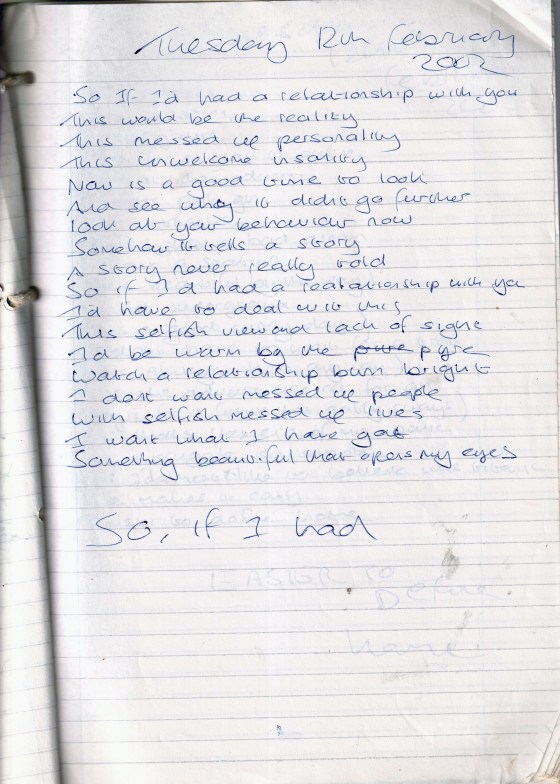 Tuesday 12th February
2002
So If I'd had a relationship with you
This would be the reality
This messed up personality
This unwelcome insanity
Now is a good time to look
And see why it didnt go further
look at your behaviour now
Somehow it tells a story
A story never really told
So if I'd had a realationship with you
I'd have to deal with this
This selfish view and lack of sight
I'd be warm by the pure pyre
Watch a relationship burn bright
I dont want messed up people
With selfish messed up lives
I want what I have got
Something beautiful that opens my eyes
So, if I had